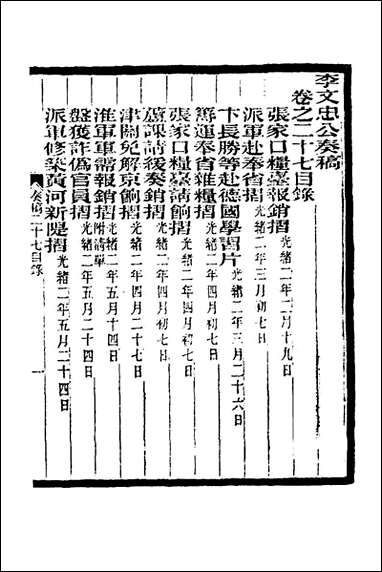 李文忠公奏稿
卷之二十七目錄
張家口糧臺報銷摺光緒二年二月十九日
派軍赴奉省摺光緒二年三月初七日
卞長勝等赴德國學習片光緒二年三月二十六日
籌運奉省雜糧摺光緒二年四月初七日
張家口糧臺請餉摺光緒二年四月初七日
蘆課請緩奏銷摺光緒二年四月初十日
津關免解京餉摺光緒二年四月二十七日
淮軍軍需報銷摺附清單光緒二年五月十四日
盤獲詐偽官員摺光緒二年五月二十四日
派軍修築黃河新隄摺光緒二年五月二十四日
奏稿二十七目錄
一